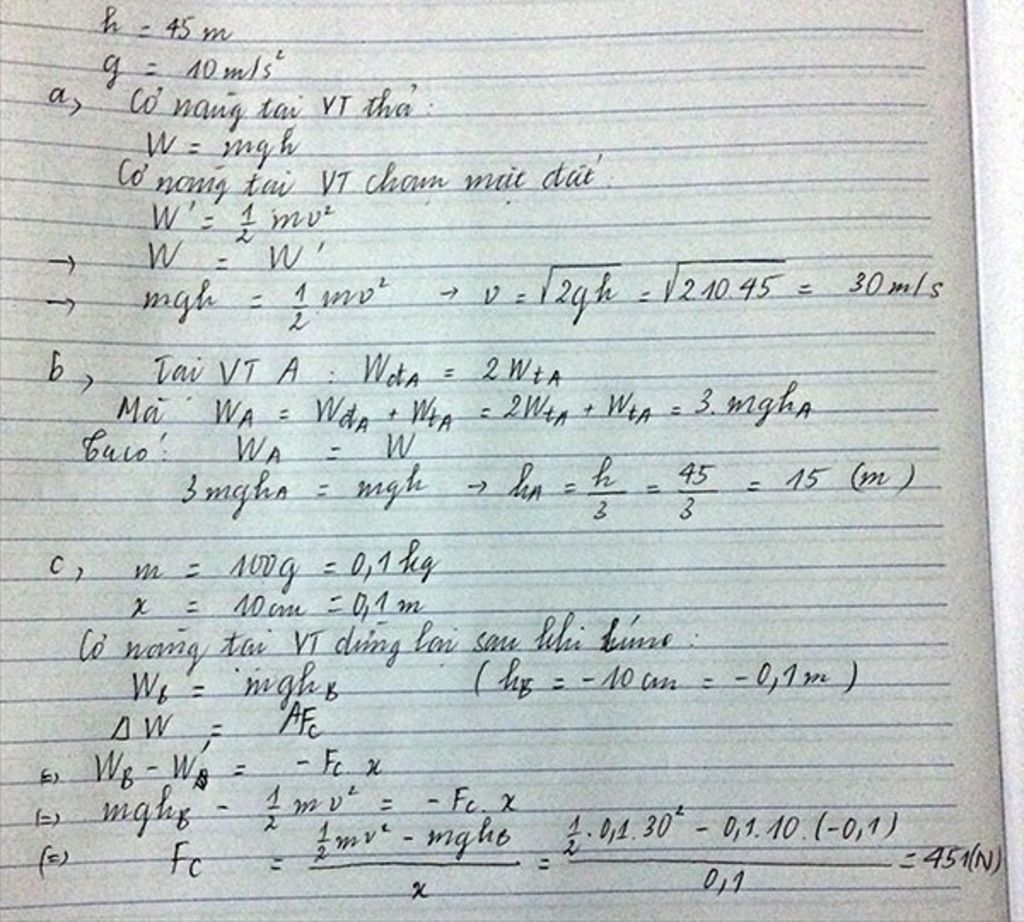 h = 45 m
g = 10 m/s²
a, Cơ năng tại VT thả:
W = mgh
Cơ năng tại VT chạm mặt đất:
W' = 1/2 mv²
→ W = W'
→ mgh = 1/2 mv² → v = √2gh = √2.10.45 = 30 m/s
b, Tại VT A : WđA = 2WtA
Mà WA = WđA + WtA = 2WtA + WtA = 3.mghA
Ta có: WA = W
3mghA = mgh → hA = h/3 = 45/3 = 15 (m)
c, m = 100g = 0,1 kg
x = 10 cm = 0,1 m
Cơ năng tại VT dừng lại sau khi lún:
WB = mghB (hB = -10 cm = -0,1 m)
ΔW = AFc
(=) WB - W' = -Fc x
(=) mghB - 1/2 mv² = -Fc. x
(=) Fc = (1/2 mv² - mghB)/x = (1/2 . 0,1.30² - 0,1.10.(-0,1))/0,1 = 451(N)